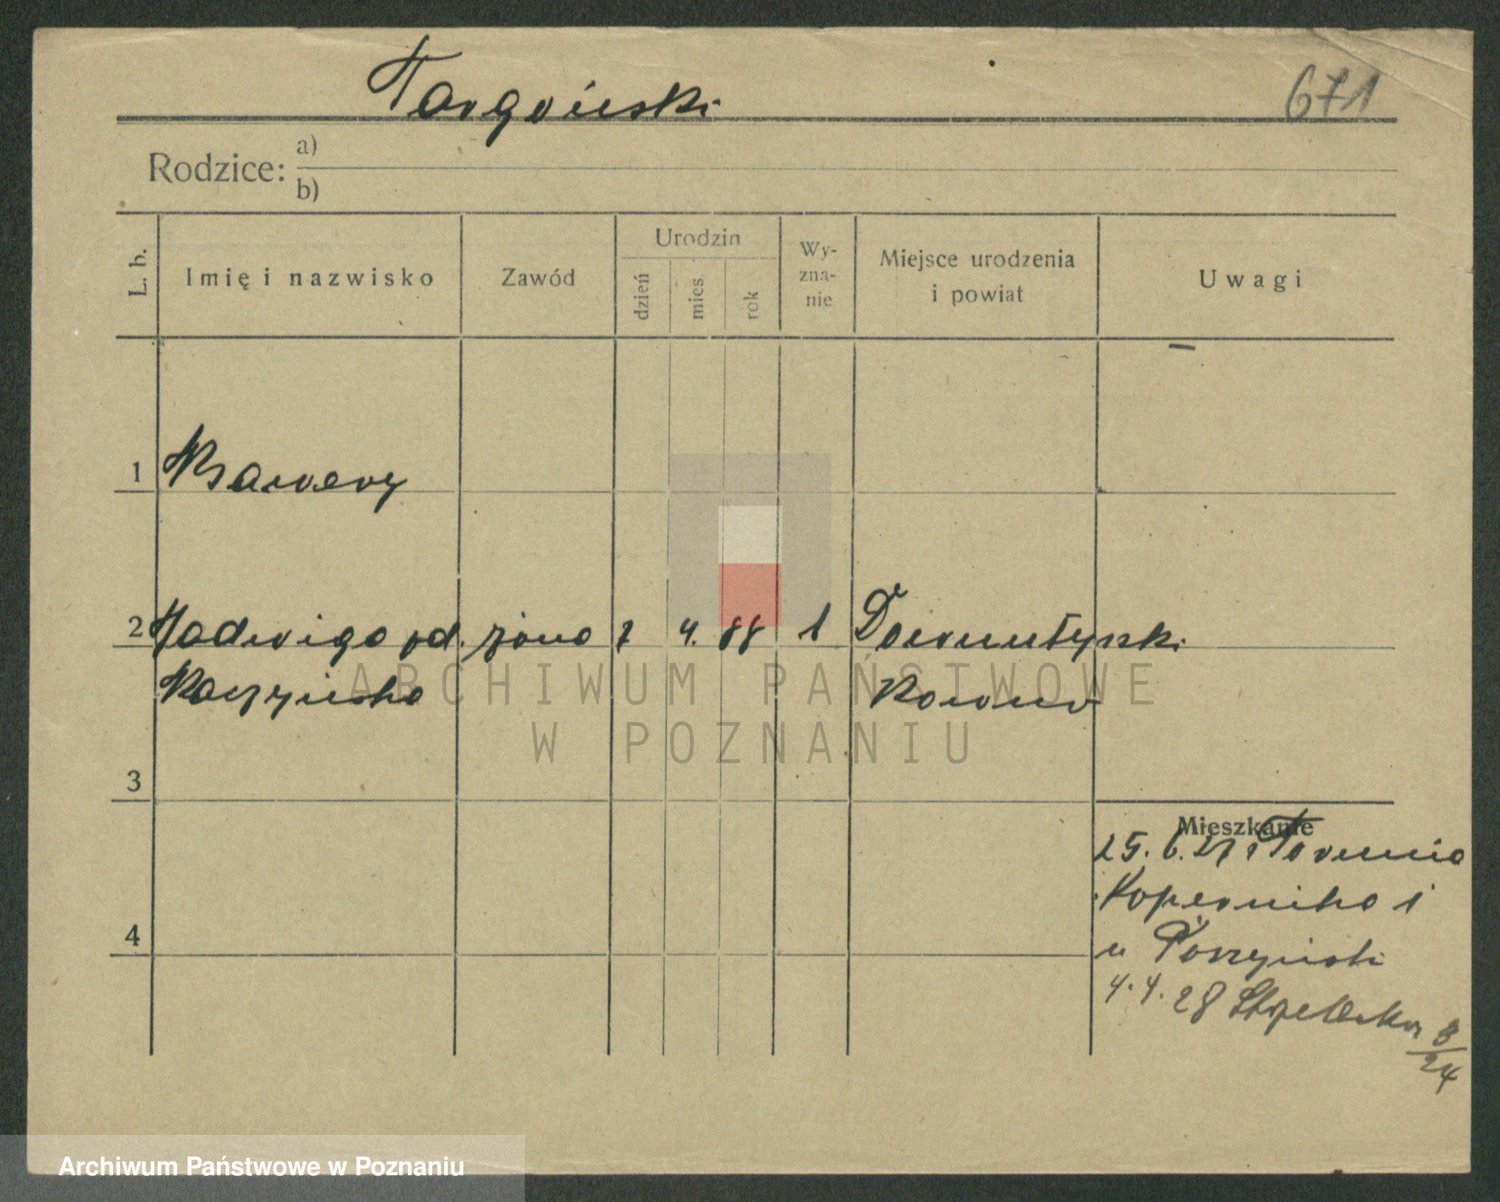 Targoński
671
Rodzice: a)
b)
L. b.
Imię i nazwisko
Zawód
Urodzin
dzień
mies.
rok
Wy-
zna-
nie
Miejsce urodzenia
i powiat
Uwagi
1 Ksawery
2 Jadwiga od. żona 7 4. 88 1
Kowno
ARCHIWUM PAŃSTWOWE
W POZNANIU
3
Mieszkanie
25. 6. 27 z Torunia
Kopernika 1
4
u
4. 4. 28 Strzelecka 8/24
Archiwum Państwowe w Poznaniu